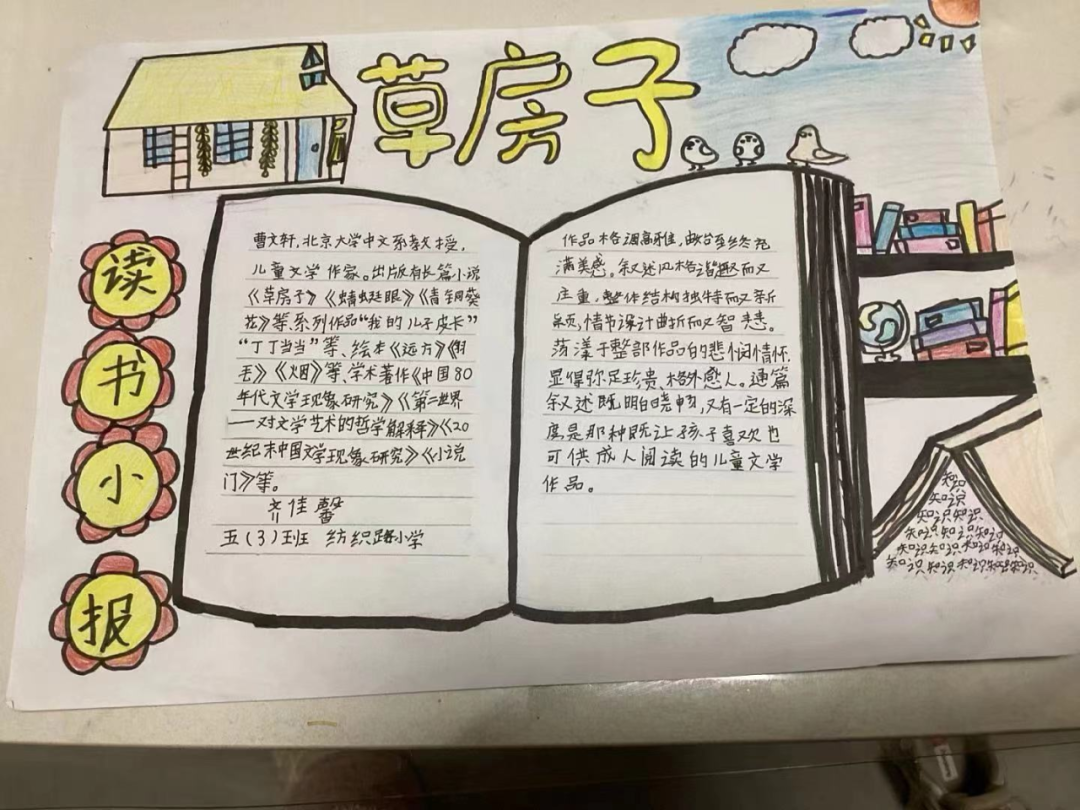 草房子
读
书
小
报
曹文轩,北京大学中文系教授,
儿童文学作家。出版有长篇小说
《草房子》《蜻蜓眼》《青铜葵
花》等、系列作品“我的儿子皮卡”
“丁丁当当”等、绘本《远方》《羽
毛》《烟》等、学术著作《中国80
年代文学现象研究》《第二世界
——对文学艺术的哲学解释》《20
世纪末中国文学现象研究》《小说
门》等。
齐佳馨
五(3)班 纺织路小学
作品格调高雅,由始至终充
满美感。叙述风格谐趣而又
庄重,整体结构独特而又新
颖,情节设计曲折而又智慧。
荡漾于整部作品的悲悯情怀,
显得弥足珍贵、格外感人。通篇
叙述既明白晓畅,又有一定的深
度是那种既让孩子喜欢也
可供成人阅读的儿童文学
作品。
知识
知识
知识知识
知识知识知识
知识知识知识知识
知识知识知识知识知识